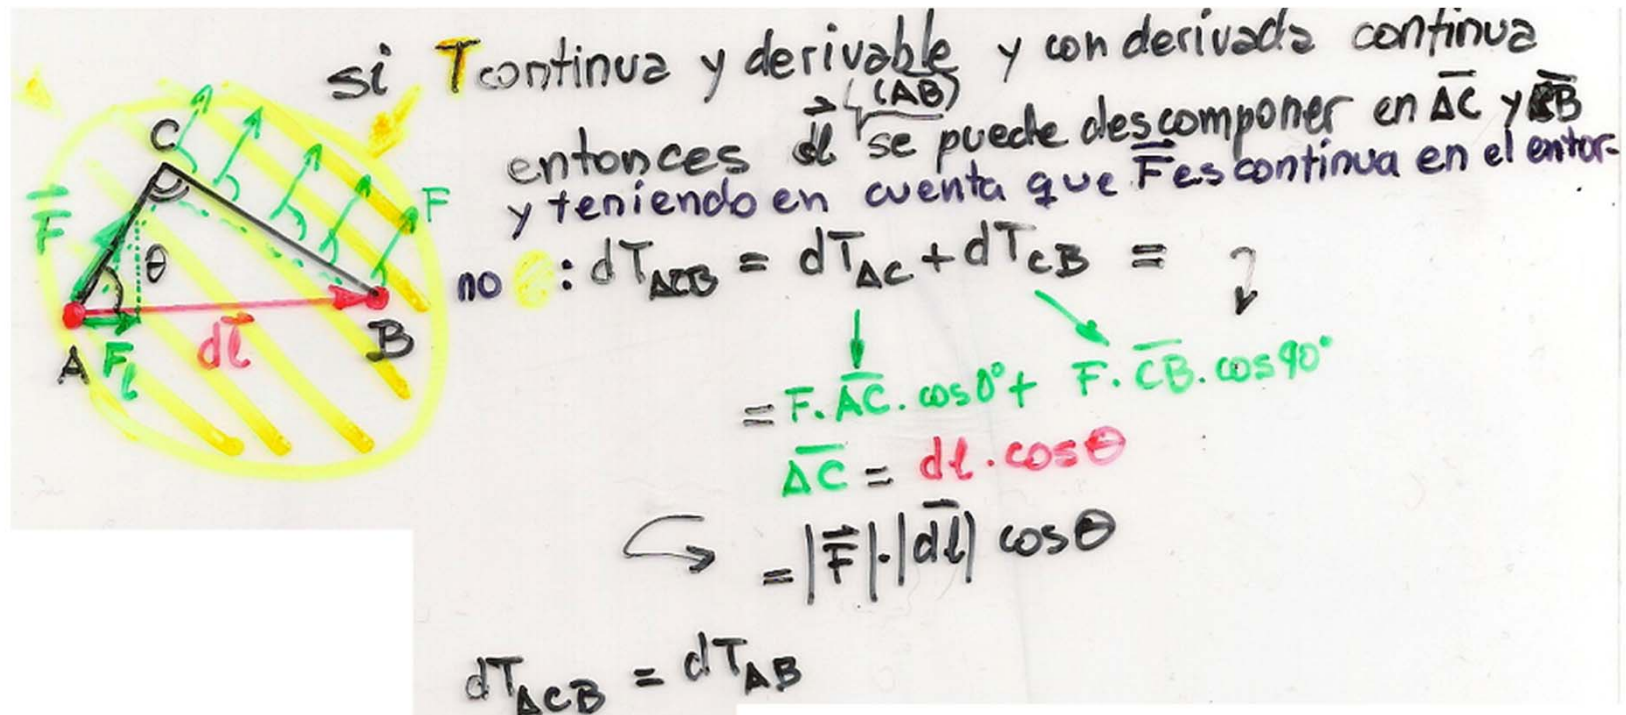 si T continua y derivable y con derivada continua
(AB)
entonces dl se puede descomponer en AC y CB
y teniendo en cuenta que F es continua en el entor-
no : dT_ACB = dT_AC + dT_CB =
= F. AC. cos0° + F. CB. cos90°
AC = dl. cosθ
= |F|.|dl| cosθ
dT_ACB = dT_AB
C
F
F
θ
A
F_l
dl
B